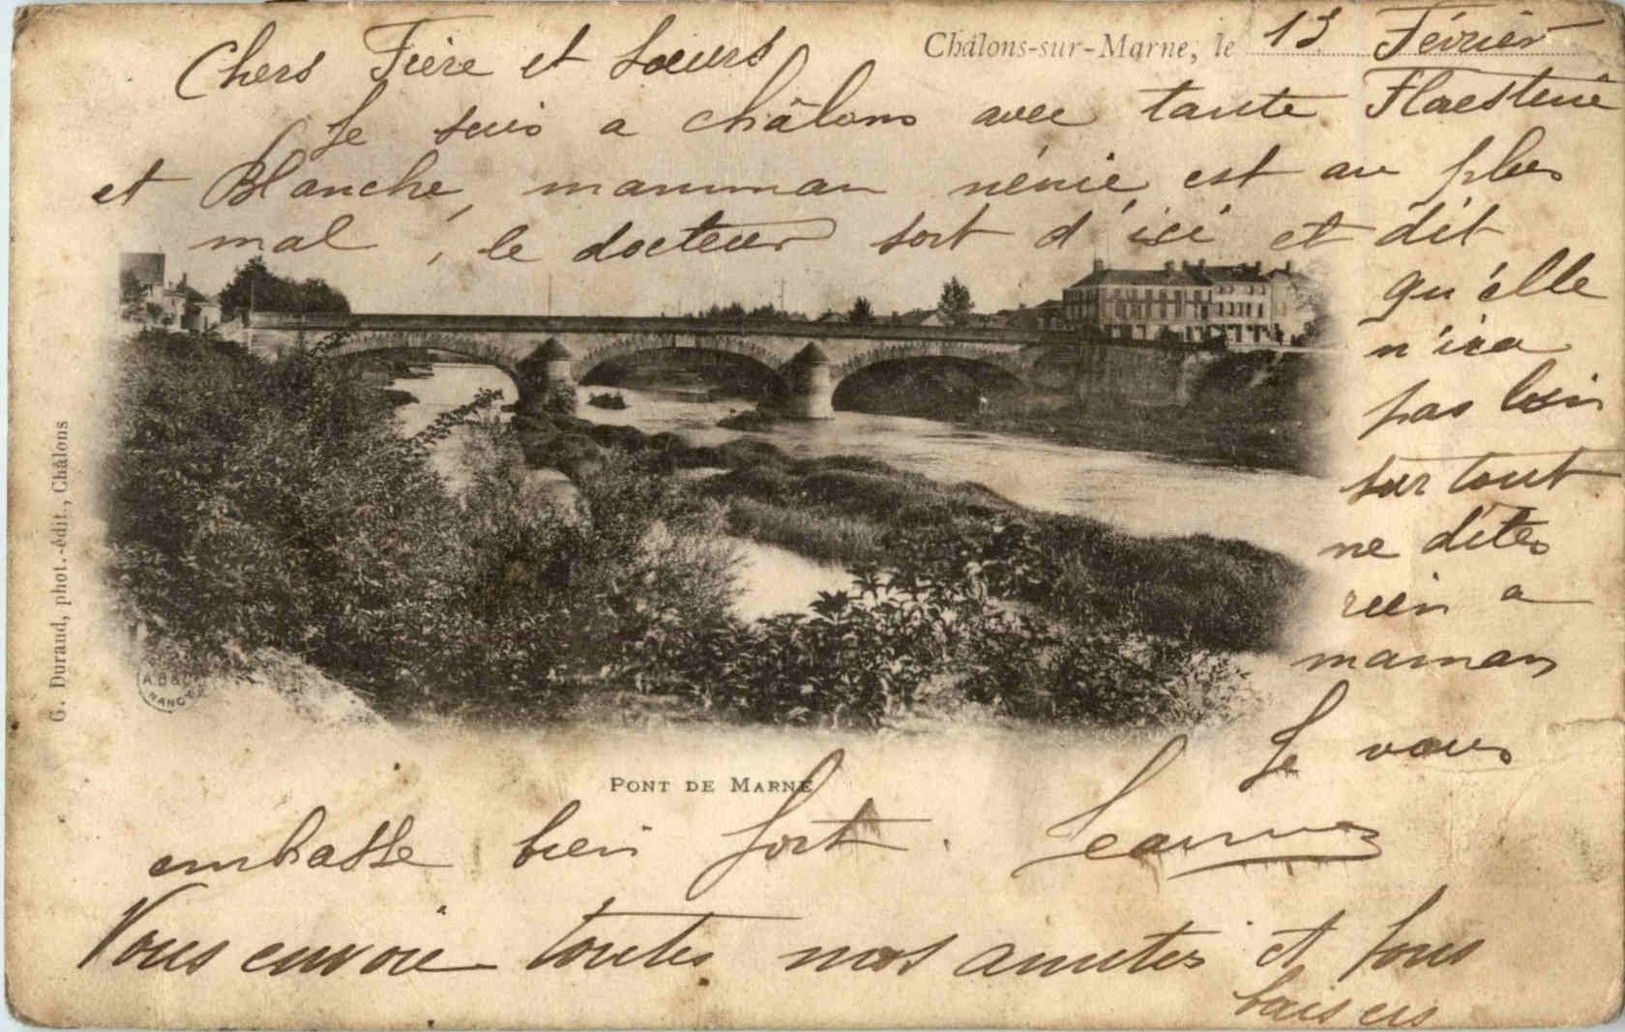 Châlons-sur-Marne, le 13 Février
Chers Frère et Soeurs
Je suis a châlons avec tante
et Blanche, mamman ménie est au plus
mal, le docteur sort d'ici et dit
qu'elle
n'ira
pas loin
surtout
ne dites
rien a
maman
Je vous
PONT DE MARNE
embasse bien fort. Jeanne
Vous envoie toutes nos amities et bons
baisers
G. Durand, phot.-édit., Châlons